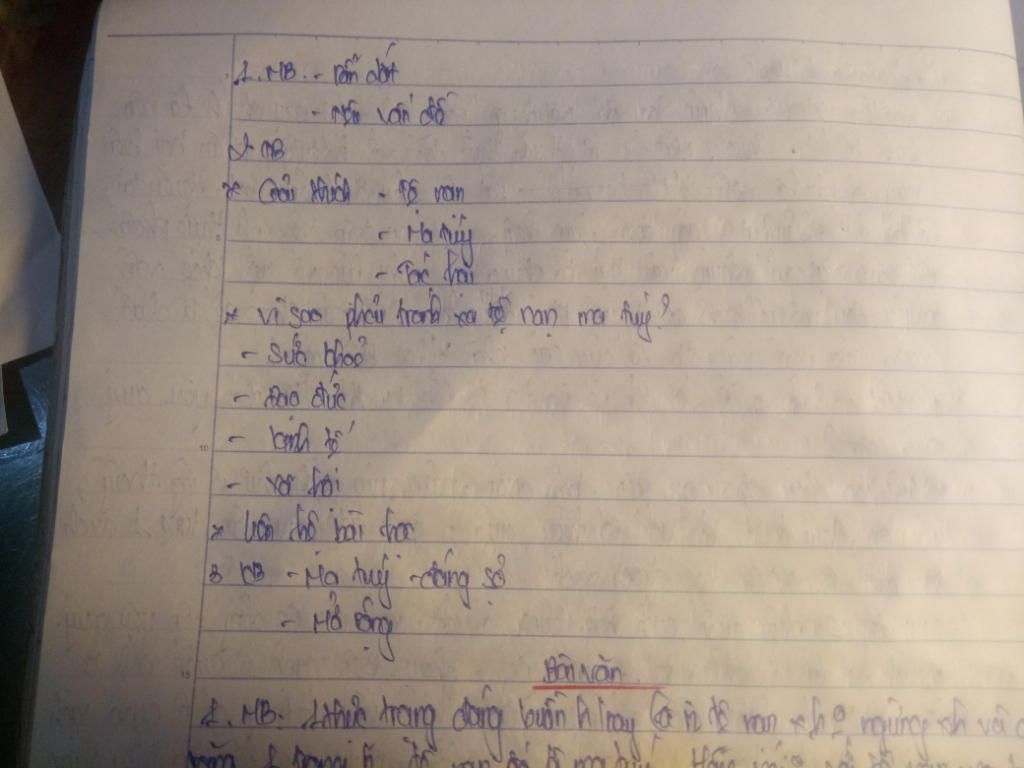 1. MB. - Dẫn dắt
- Nêu vấn đề
2 TB
* Giải thích - Tệ nạn
- Ma tuý
- Tác hại
* Vì sao phải tránh xa tệ nạn ma tuý?
- Sức khoẻ
- Đạo đức
- kinh tế
- xã hội
* Liên hệ bài học
3 KB - Ma tuý - đáng sợ
- Mở rộng
Bài văn
1. MB. 1 thực trạng đáng buồn h nay là n tệ nạn xh 0 ngừng xh và